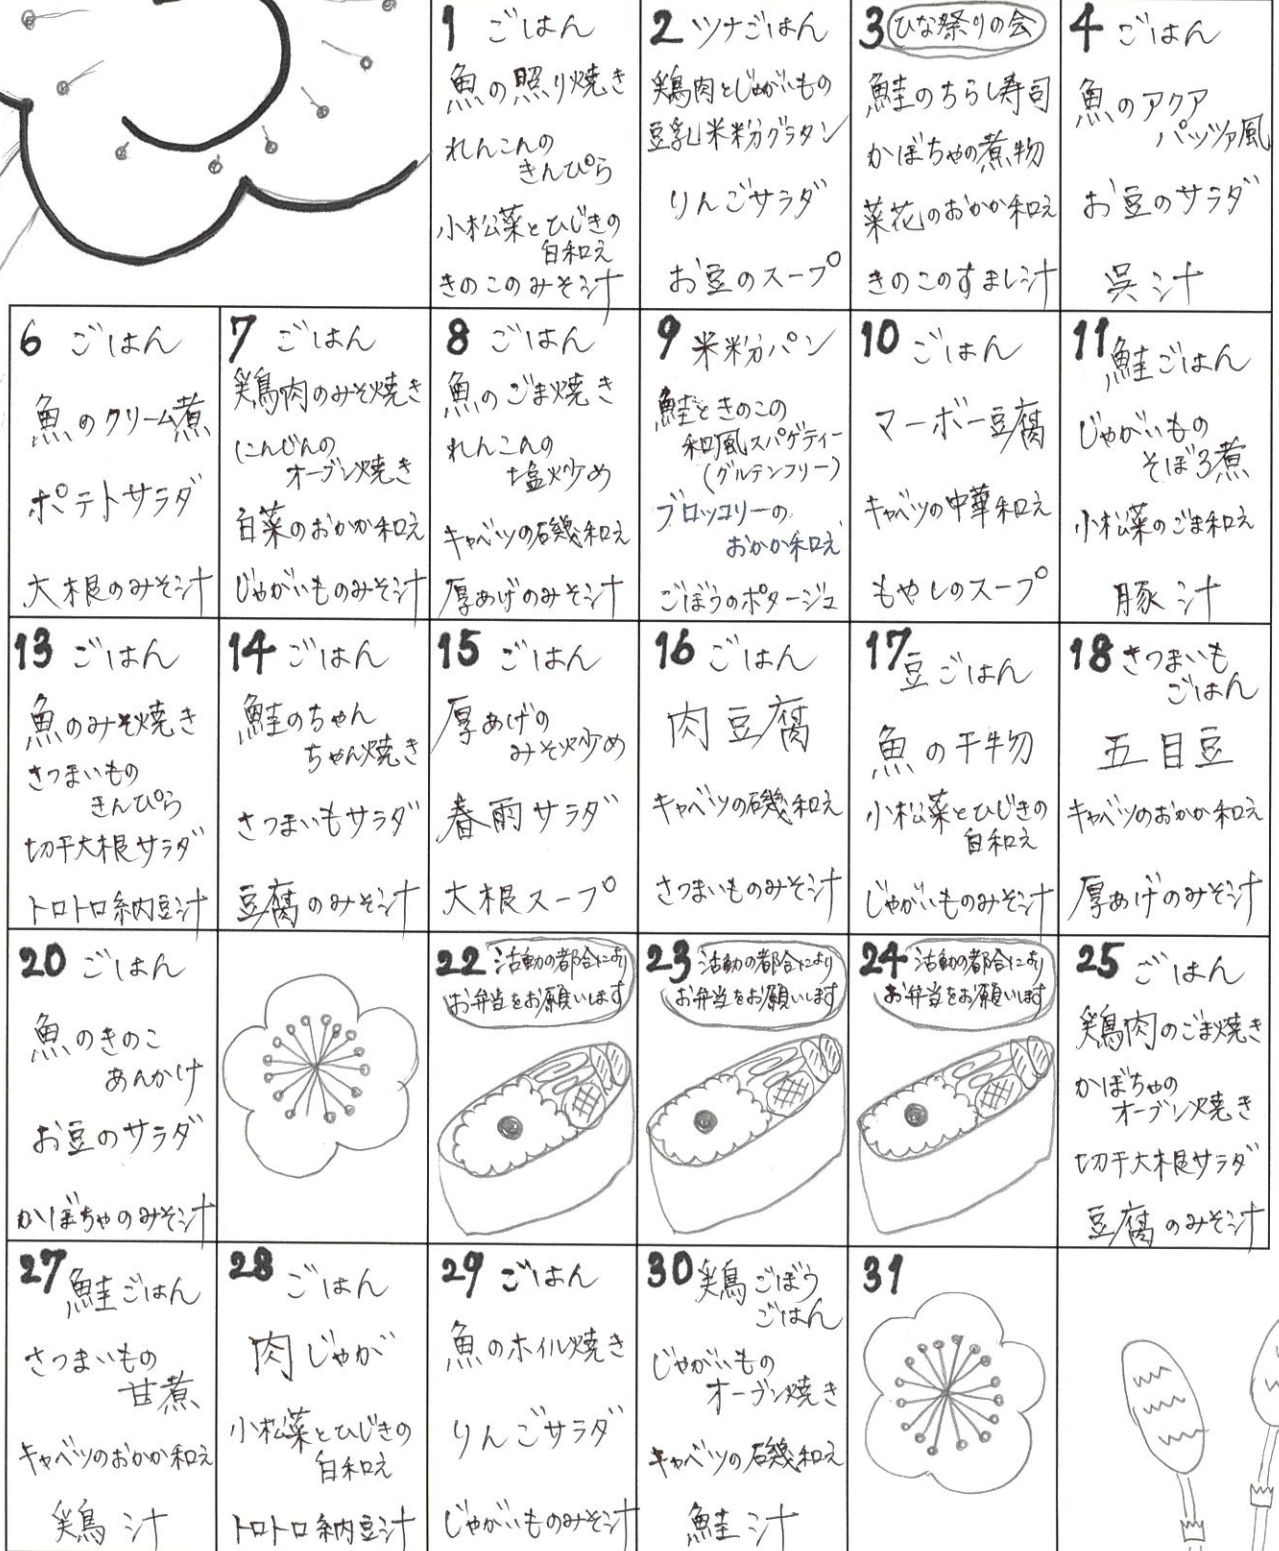 1 ごはん
魚の照り焼き
れんこんの
きんぴら
小松菜とひじきの
白和え
きのこのみそ汁
2 ツナごはん
鶏肉とじゃがいもの
豆乳米粉グラタン
りんごサラダ
お豆のスープ
3 ひな祭りの会
鮭のちらし寿司
かぼちゃの煮物
菜花のおかか和え
きのこのすまし汁
4 ごはん
魚のアクア
パッツァ風
お豆のサラダ
呉汁
6 ごはん
魚のクリーム煮
ポテトサラダ
大根のみそ汁
7 ごはん
鶏肉のみそ焼き
にんじんの
オーブン焼き
白菜のおかか和え
じゃがいものみそ汁
8 ごはん
魚のごま焼き
れんこんの
塩炒め
キャベツの磯和え
厚あげのみそ汁
9 米粉パン
鮭ときのこの
和風スパゲティー
(グルテンフリー)
ブロッコリーの
おかか和え
ごぼうのポタージュ
10 ごはん
マーボー豆腐
キャベツの中華和え
もやしのスープ
11 鮭ごはん
じゃがいもの
そぼろ煮
小松菜のごま和え
豚汁
13 ごはん
魚のみそ焼き
さつまいもの
きんぴら
切干大根サラダ
トロトロ納豆汁
14 ごはん
鮭のちゃん
ちゃん焼き
さつまいもサラダ
豆腐のみそ汁
15 ごはん
厚あげの
みそ炒め
春雨サラダ
大根スープ
16 ごはん
肉豆腐
キャベツの磯和え
さつまいものみそ汁
17 豆ごはん
魚の干物
小松菜とひじきの
白和え
じゃがいものみそ汁
18 さつまいも
ごはん
五目豆
キャベツのおかか和え
厚あげのみそ汁
20 ごはん
魚のきのこ
あんかけ
お豆のサラダ
かぼちゃのみそ汁
22 活動の都合により
お弁当をお願いします
23 活動の都合により
お弁当をお願いします
24 活動の都合により
お弁当をお願いします
25 ごはん
鶏肉のごま焼き
かぼちゃの
オーブン焼き
切干大根サラダ
豆腐のみそ汁
27 鮭ごはん
さつまいもの
甘煮
キャベツのおかか和え
鶏汁
28 ごはん
肉じゃが
小松菜とひじきの
白和え
トロトロ納豆汁
29 ごはん
魚のホイル焼き
りんごサラダ
じゃがいものみそ汁
30 鶏ごぼう
ごはん
じゃがいもの
オーブン焼き
キャベツの磯和え
鮭汁
31